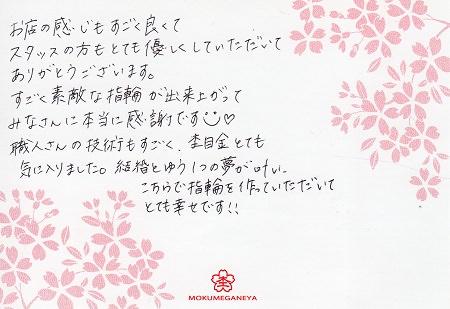 お店の感じもすごく良くて
スタッスの方もとても優しくしていただいて
ありがとうございます。
すごく素敵な指輪が出来上がって
みなさんに本当に感謝です☺♡
職人さんの技術もすごく、杢目金とても
気に入りました。結婚とゆう1つの夢が叶い、
こちらで指輪を作っていただいて
とても幸せです!!
杢
MOKUMEGANEYA